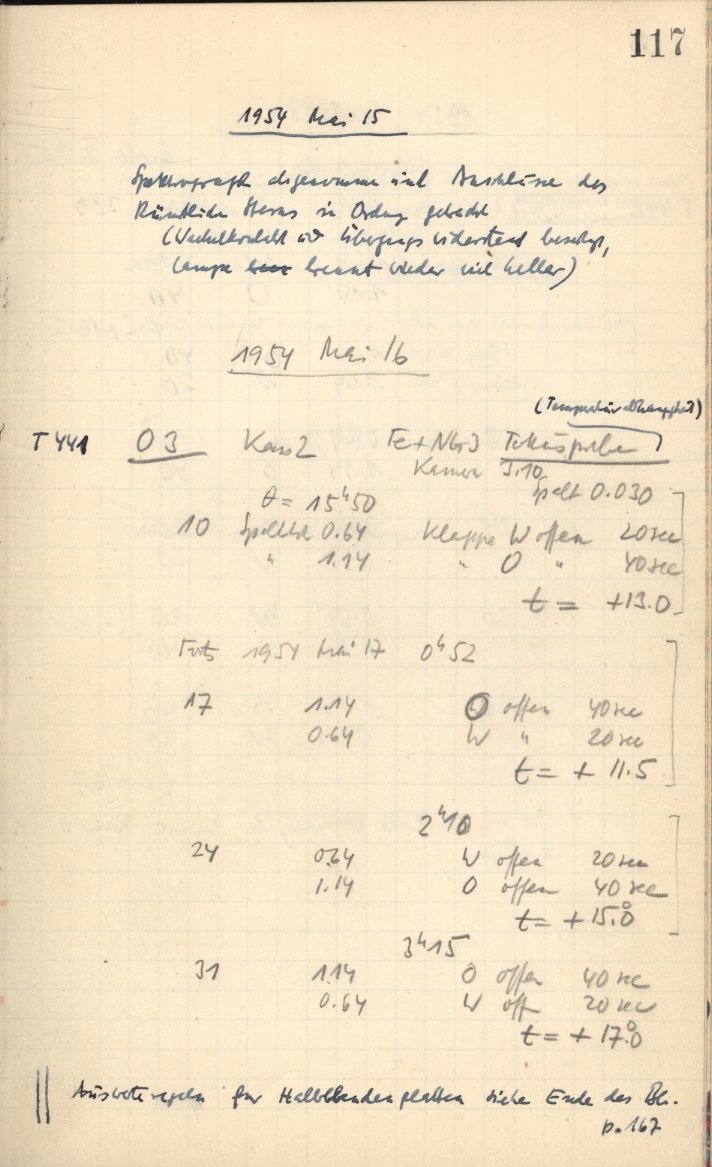 117
1954 Mai 15
Spektrograph abgenommen und Anschlüsse des
Künstlichen Sterns in Ordng gebracht
(Wackelkontakt und Übergangswiderstand beseitigt,
Lampe brennt wieder viel heller)
1954 Mai 16
(Temperaturabhängigkeit)
T 441 O 3 Kass 2 Fe+Nbr3 Fokusprobe
Kamera 3.10
θ = 15ʰ50 Spalt 0.030
10 0.64 Klappe W offen 20 sec
" 1.14 " O " 40 sec
t = +13.0
Forts 1954 Mai 17 0ʰ52
17 1.14 O offen 40 sec
0.64 W " 20 sec
t = + 11.5
2ʰ10
24 0.64 W offen 20 sec
1.14 O offen 40 sec
t = + 15.°0
3ʰ15
31 1.14 O offen 40 sec
0.64 W off 20 sec
t = + 17.°0
für Halbblendenplatten siehe Ende des Bh.
p. 167